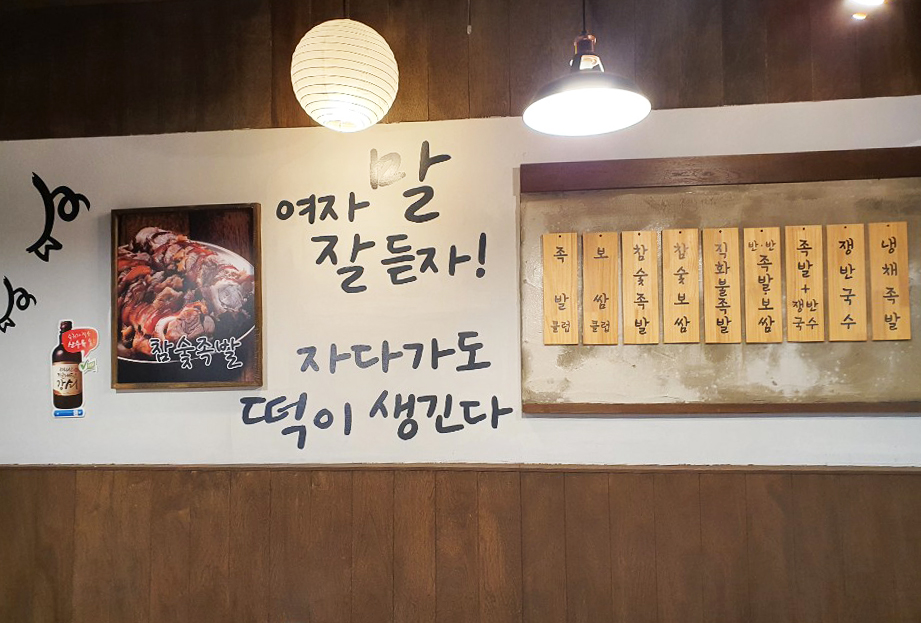 여자 말
잘 듣자!
자다가도
떡이 생긴다
참숯족발
강서
족발 클럽
보쌈 클럽
참숯족발
참숯보쌈
직화불족발
반·반 족발·보쌈
족발+쟁반국수
쟁반국수
냉채족발